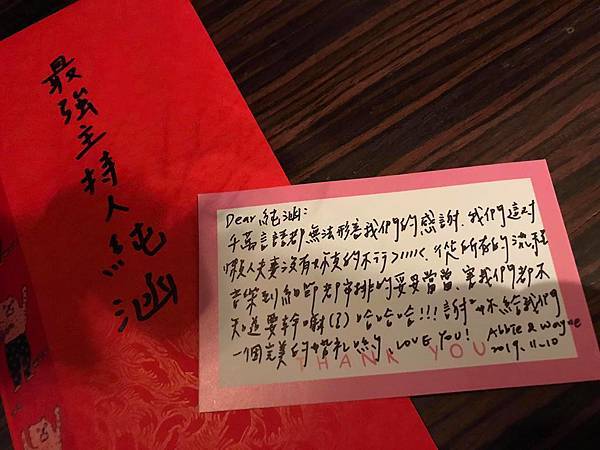 最強主持人純涵
Dear 純涵:
千萬言語都無法形容我們的感謝.我們這对
懶人夫妻沒有妳真的不行.從所有的流程
音樂到細節都安排的妥妥當當.害我們都不
知道要幹嘛(?)哈哈哈!!!謝妳給我們
一個完美的婚礼 LOVE YOU! Abbie & Wayne
2019.11.10
THANK YOU